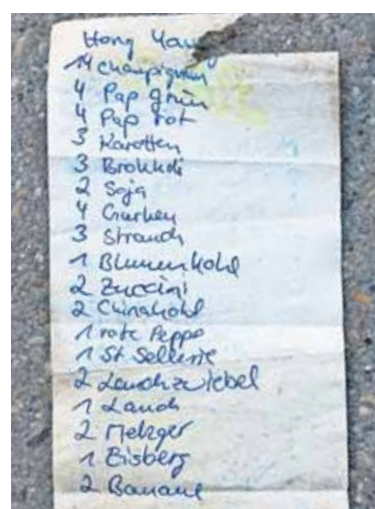 Hong Yang
14 Champignon
4 Pap grün
4 Pap rot
3 Karotten
3 Brokkoli
2 Soja
4 Gurken
3 Strauch
1 Blumenkohl
2 Zuccini
2 Chinakohl
1 rote Peppo
1 St Sellerie
2 Lauchzwiebel
1 Lauch
2 Metzger
1 Eisberg
2 Banane